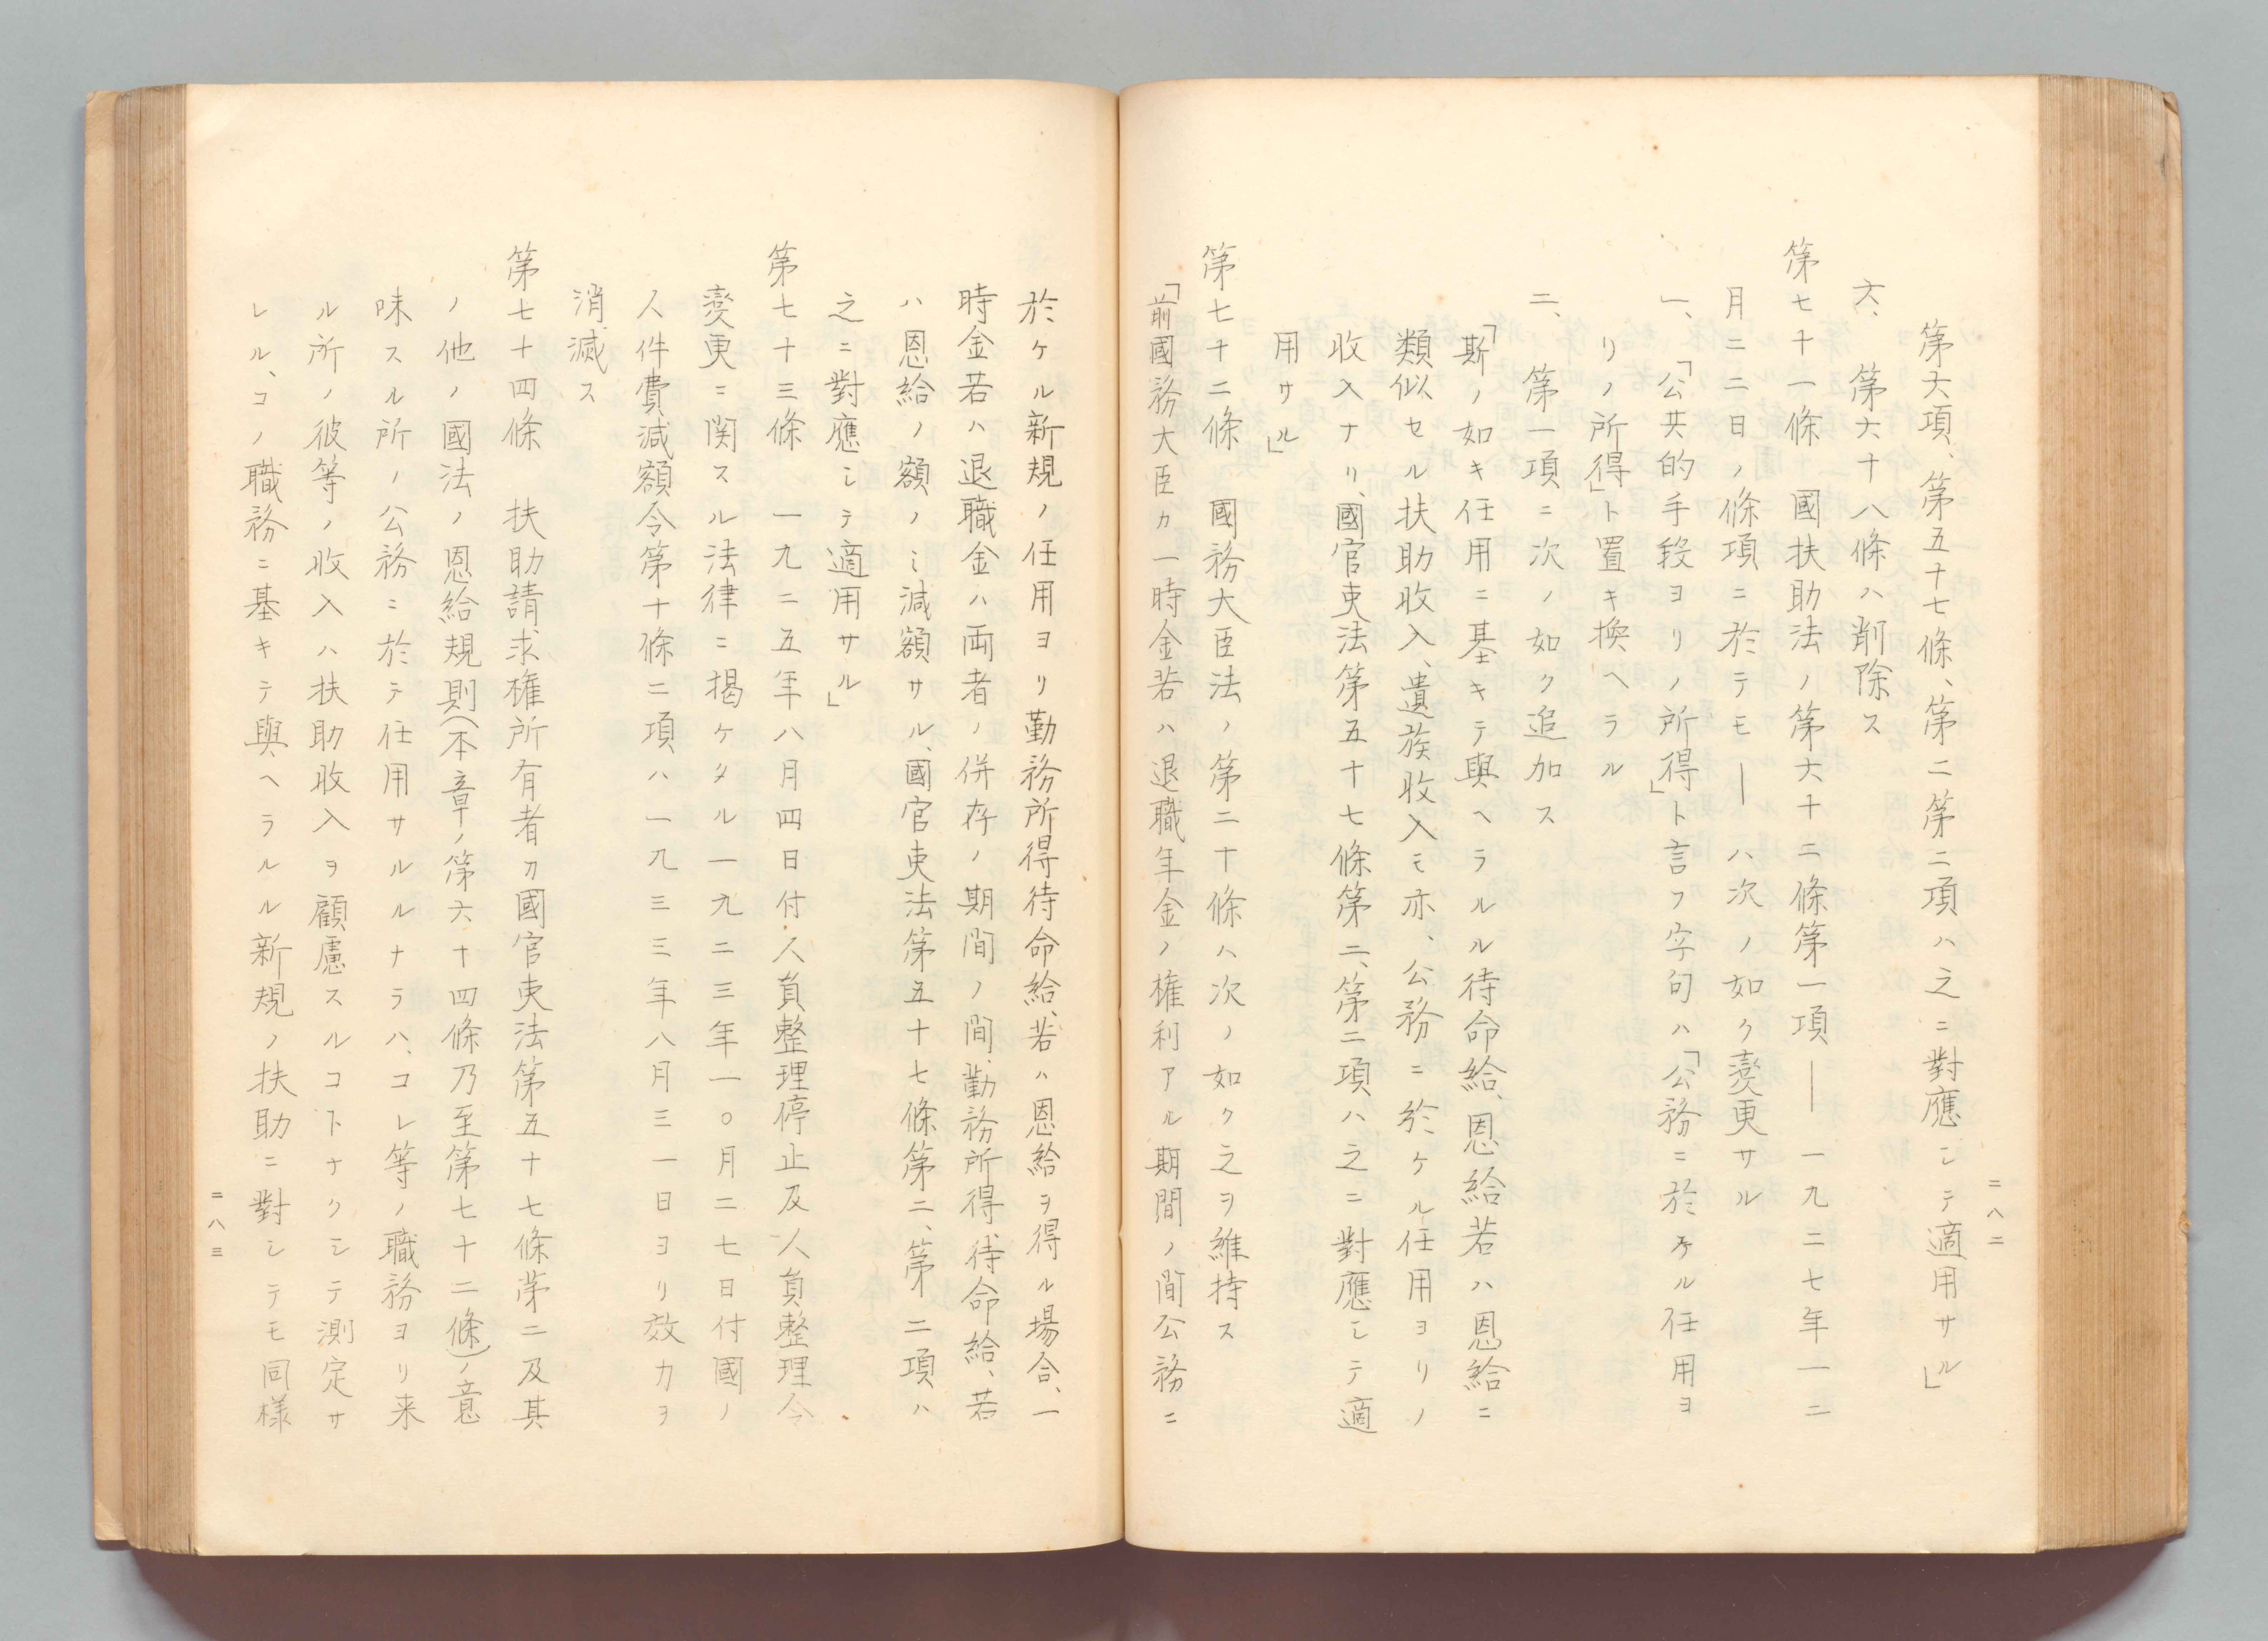 第六項、第五十七條、第二第二項ハ之ニ對應シテ適用サル」
六、第六十八條ハ削除ス
第七十一條　國扶助法ノ第六十二條第一項――一九二七年一二
月二二日ノ條項ニ於テモ―ハ次ノ如ク變更サル
一、「公共的手段ヨリノ所得」ト言フ字句ハ「公務ニ於ケル任用ヨ
リノ所得」ト置キ換ヘラル
二、第一項ニ次ノ如ク追加ス
「斯ノ如キ任用ニ基キテ與ヘラルル待命給、恩給若ハ恩給ニ
類似セル扶助收入、遺族收入モ亦、公務ニ於ケル任用ヨリノ
收入ナリ、國官吏法第五十七條第二、第二項ハ之ニ對應シテ適
用サル」
第七十二條　國務大臣法ノ第二十條ハ次ノ如ク之ヲ維持ス
「前國務大臣カ一時金若ハ退職年金ノ權利アル期間ノ間公務ニ
二八二
於ケル新規ノ任用ヨリ勤務所得待命給、若ハ恩給ヲ得ル場合、一
時金若ハ退職金ハ両者ノ併存ノ期間ノ間、勤務所得、待命給、若
ハ恩給ノ額ノミ減額サル、國官吏法第五十七條第二、第二項ハ
之ニ對應シテ適用サル」
第七十三條　一九二五年八月四日付人員整理停止及人員整理令
變更ニ関スル法律ニ揭ケタル一九二三年一〇月二七日付國ノ
人件費減額令第十條二項ハ一九三三年八月三一日ヨリ效力ヲ
消滅ス
第七十四條　扶助請求權所有者カ國官吏法第五十七條第二及其
ノ他ノ國法ノ恩給規則（本章ノ第六十四條乃至第七十二條）ノ意
味スル所ノ公務ニ於テ任用サルルナラハ、コレ等ノ職務ヨリ来
ル所ノ彼等ノ收入ハ扶助收入ヲ顧慮スルコトナクシテ測定サ
レル、コノ職務ニ基キテ與ヘラルル新規ノ扶助ニ對シテモ同様
二八三